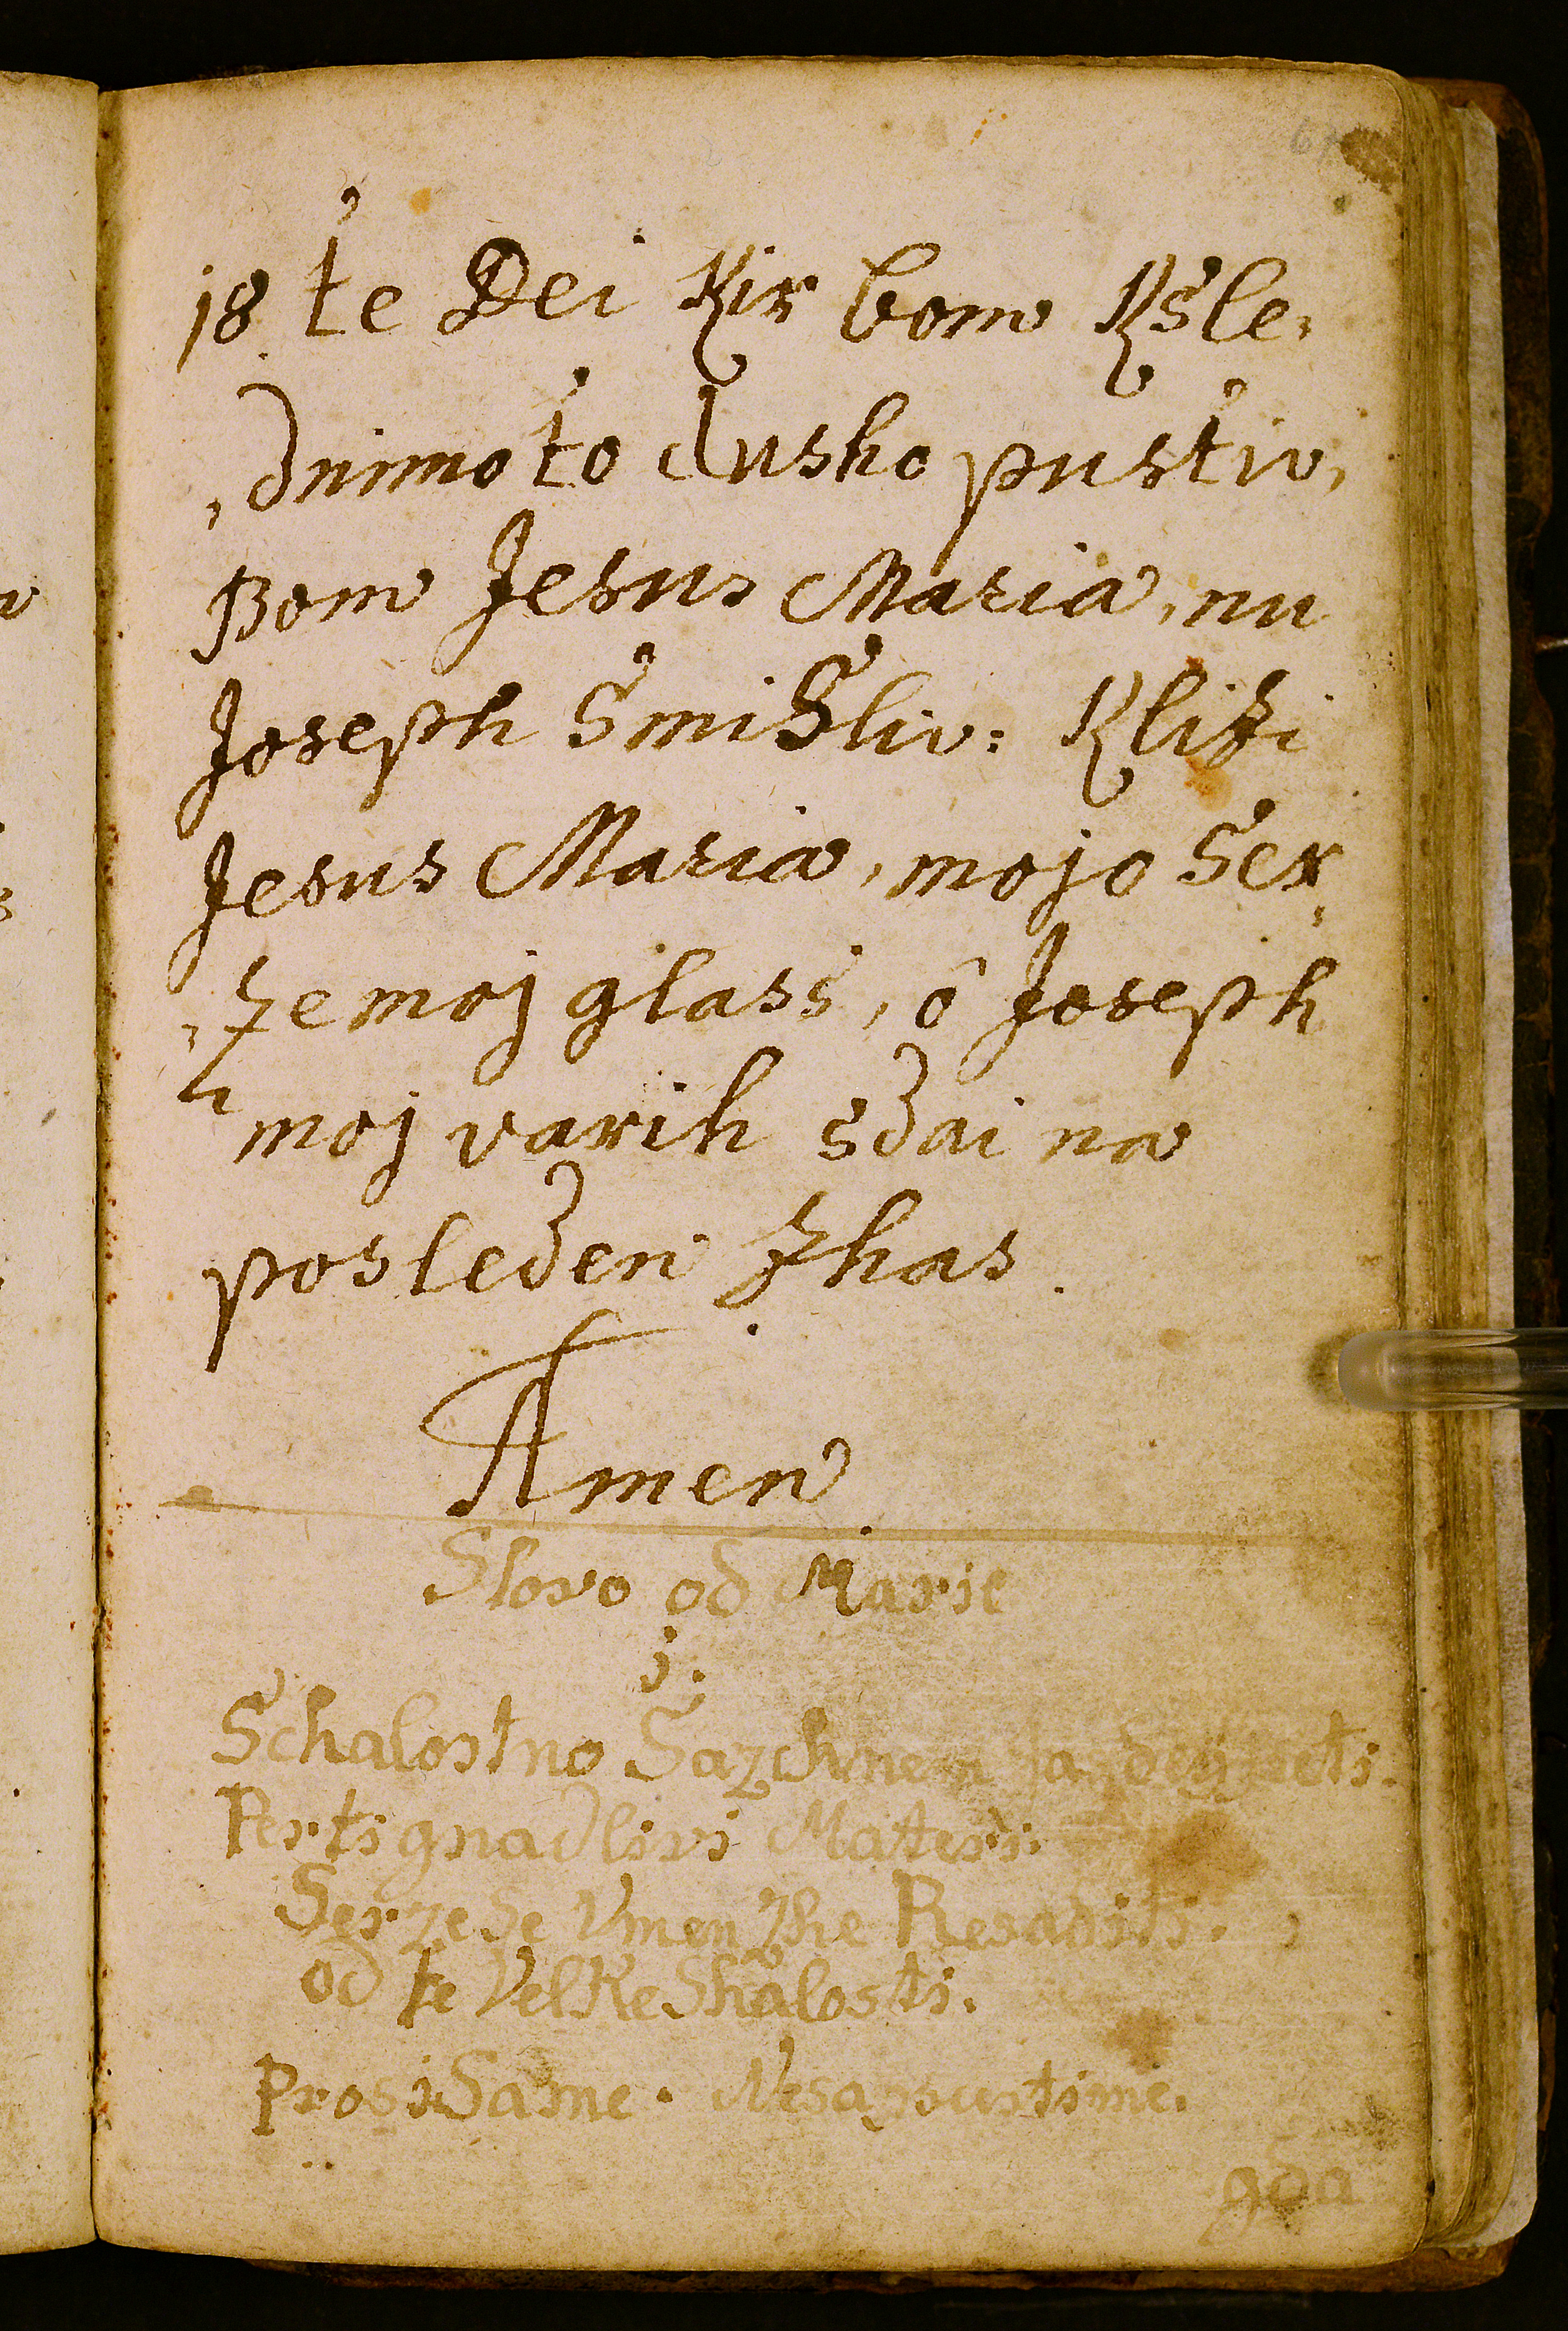 18 te Dei Kir bom Ksle,
,dnimo to dusho pustiv,
Bom Jesus Maria, nu
Joseph SmiSliv: Klizi
Jesus Maria, mojo Ser,
,ze moj glass, ô Joseph
moj varih sdai na
posleden zhas.
Amen
Slovo od Marie
j.
Schalostno Sazchnem peti.
Perti gnadlivi Materi.
Serze Se Vmen zhe Resaditi.
od te Velke Shalosti.
Prosi Same. Nesapustime.
gda